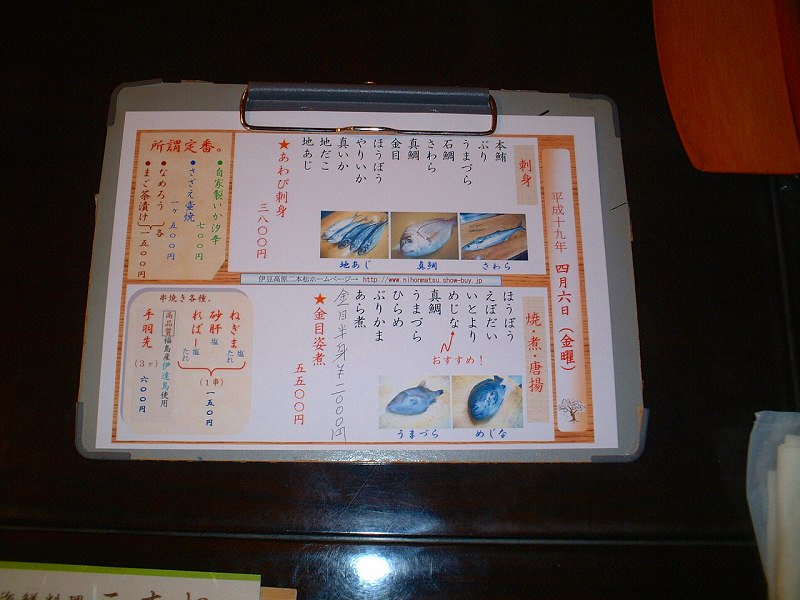 平成十九年 四月六日（金曜）
刺身
本鮪
ぶり
うまづら
石鯛
さわら
真鯛
金目
ほうぼう
やりいか
真いか
地だこ
地あじ
★あわび刺身
三八〇〇円
地あじ
真鯛
さわら
所謂定番。
●自家製いか沙奉
七〇〇円
●さざえ壷焼
一ヶ 五〇〇円
●なめろう
●まご茶漬け
各
一五〇〇円
伊豆高原二本松ホームページ→ http://www.nihonmatsu.show-buy.jp
焼・煮・唐揚
ほうぼう
えぼだい
いとより
めじな
おすすめ！
真鯛
うまづら
ひらめ
ぶりかま
あら煮
金目半身¥二〇〇〇円
★金目姿煮
五五〇〇円
うまづら
めじな
串焼き各種．
ねぎま 塩 たれ
砂肝 塩
ればー 塩 たれ
（1串）
一五〇円
高品質 福島産伊達鳥使用
手羽先
（3ヶ）
六〇〇円
海鮮料理